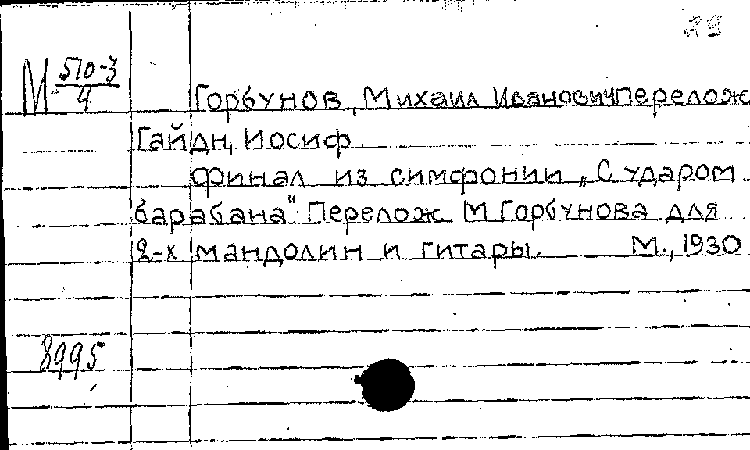 29
М 510-3/4
Горбунов, Михаил Иванович перелож
Гайдн, Иосиф
финал из симфонии „С ударом
барабана" Перелож М Горбунова для
2-х мандолин и гитары. М., 1930
8995